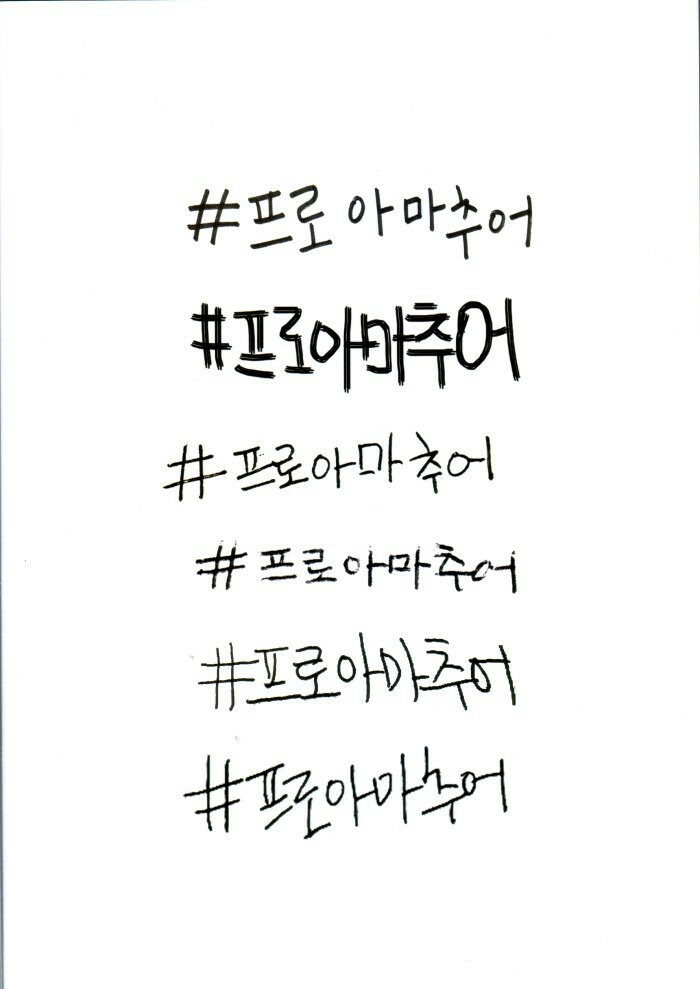 #프로 아마추어
#프로아마추어
#프로아마추어
#프로아마추어
#프로아마추어
#프로아마추어